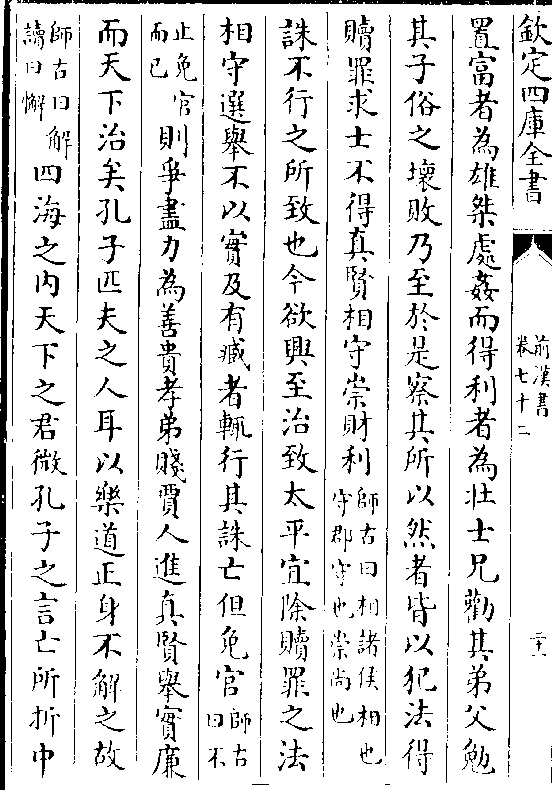 欽定四庫全書
前漢書
卷七十二
二十一
置富者為雄桀處姦而得利者為壯士兄勸其弟父勉
其子俗之壞敗乃至於是察其所以然者皆以犯法得
贖罪求士不得真賢相守崇財利師古曰相諸侯相也守郡守也崇尚也
誅不行之所致也今欲興至治致太平宜除贖罪之法
相守選舉不以實及有臧者輒行其誅亡但免官師古曰不
止免官而已則爭盡力為善貴孝弟賤賈人進真賢舉實廉
而天下治矣孔子匹夫之人耳以樂道正身不解之故
師古曰解讀曰懈四海之内天下之君微孔子之言亡所折中